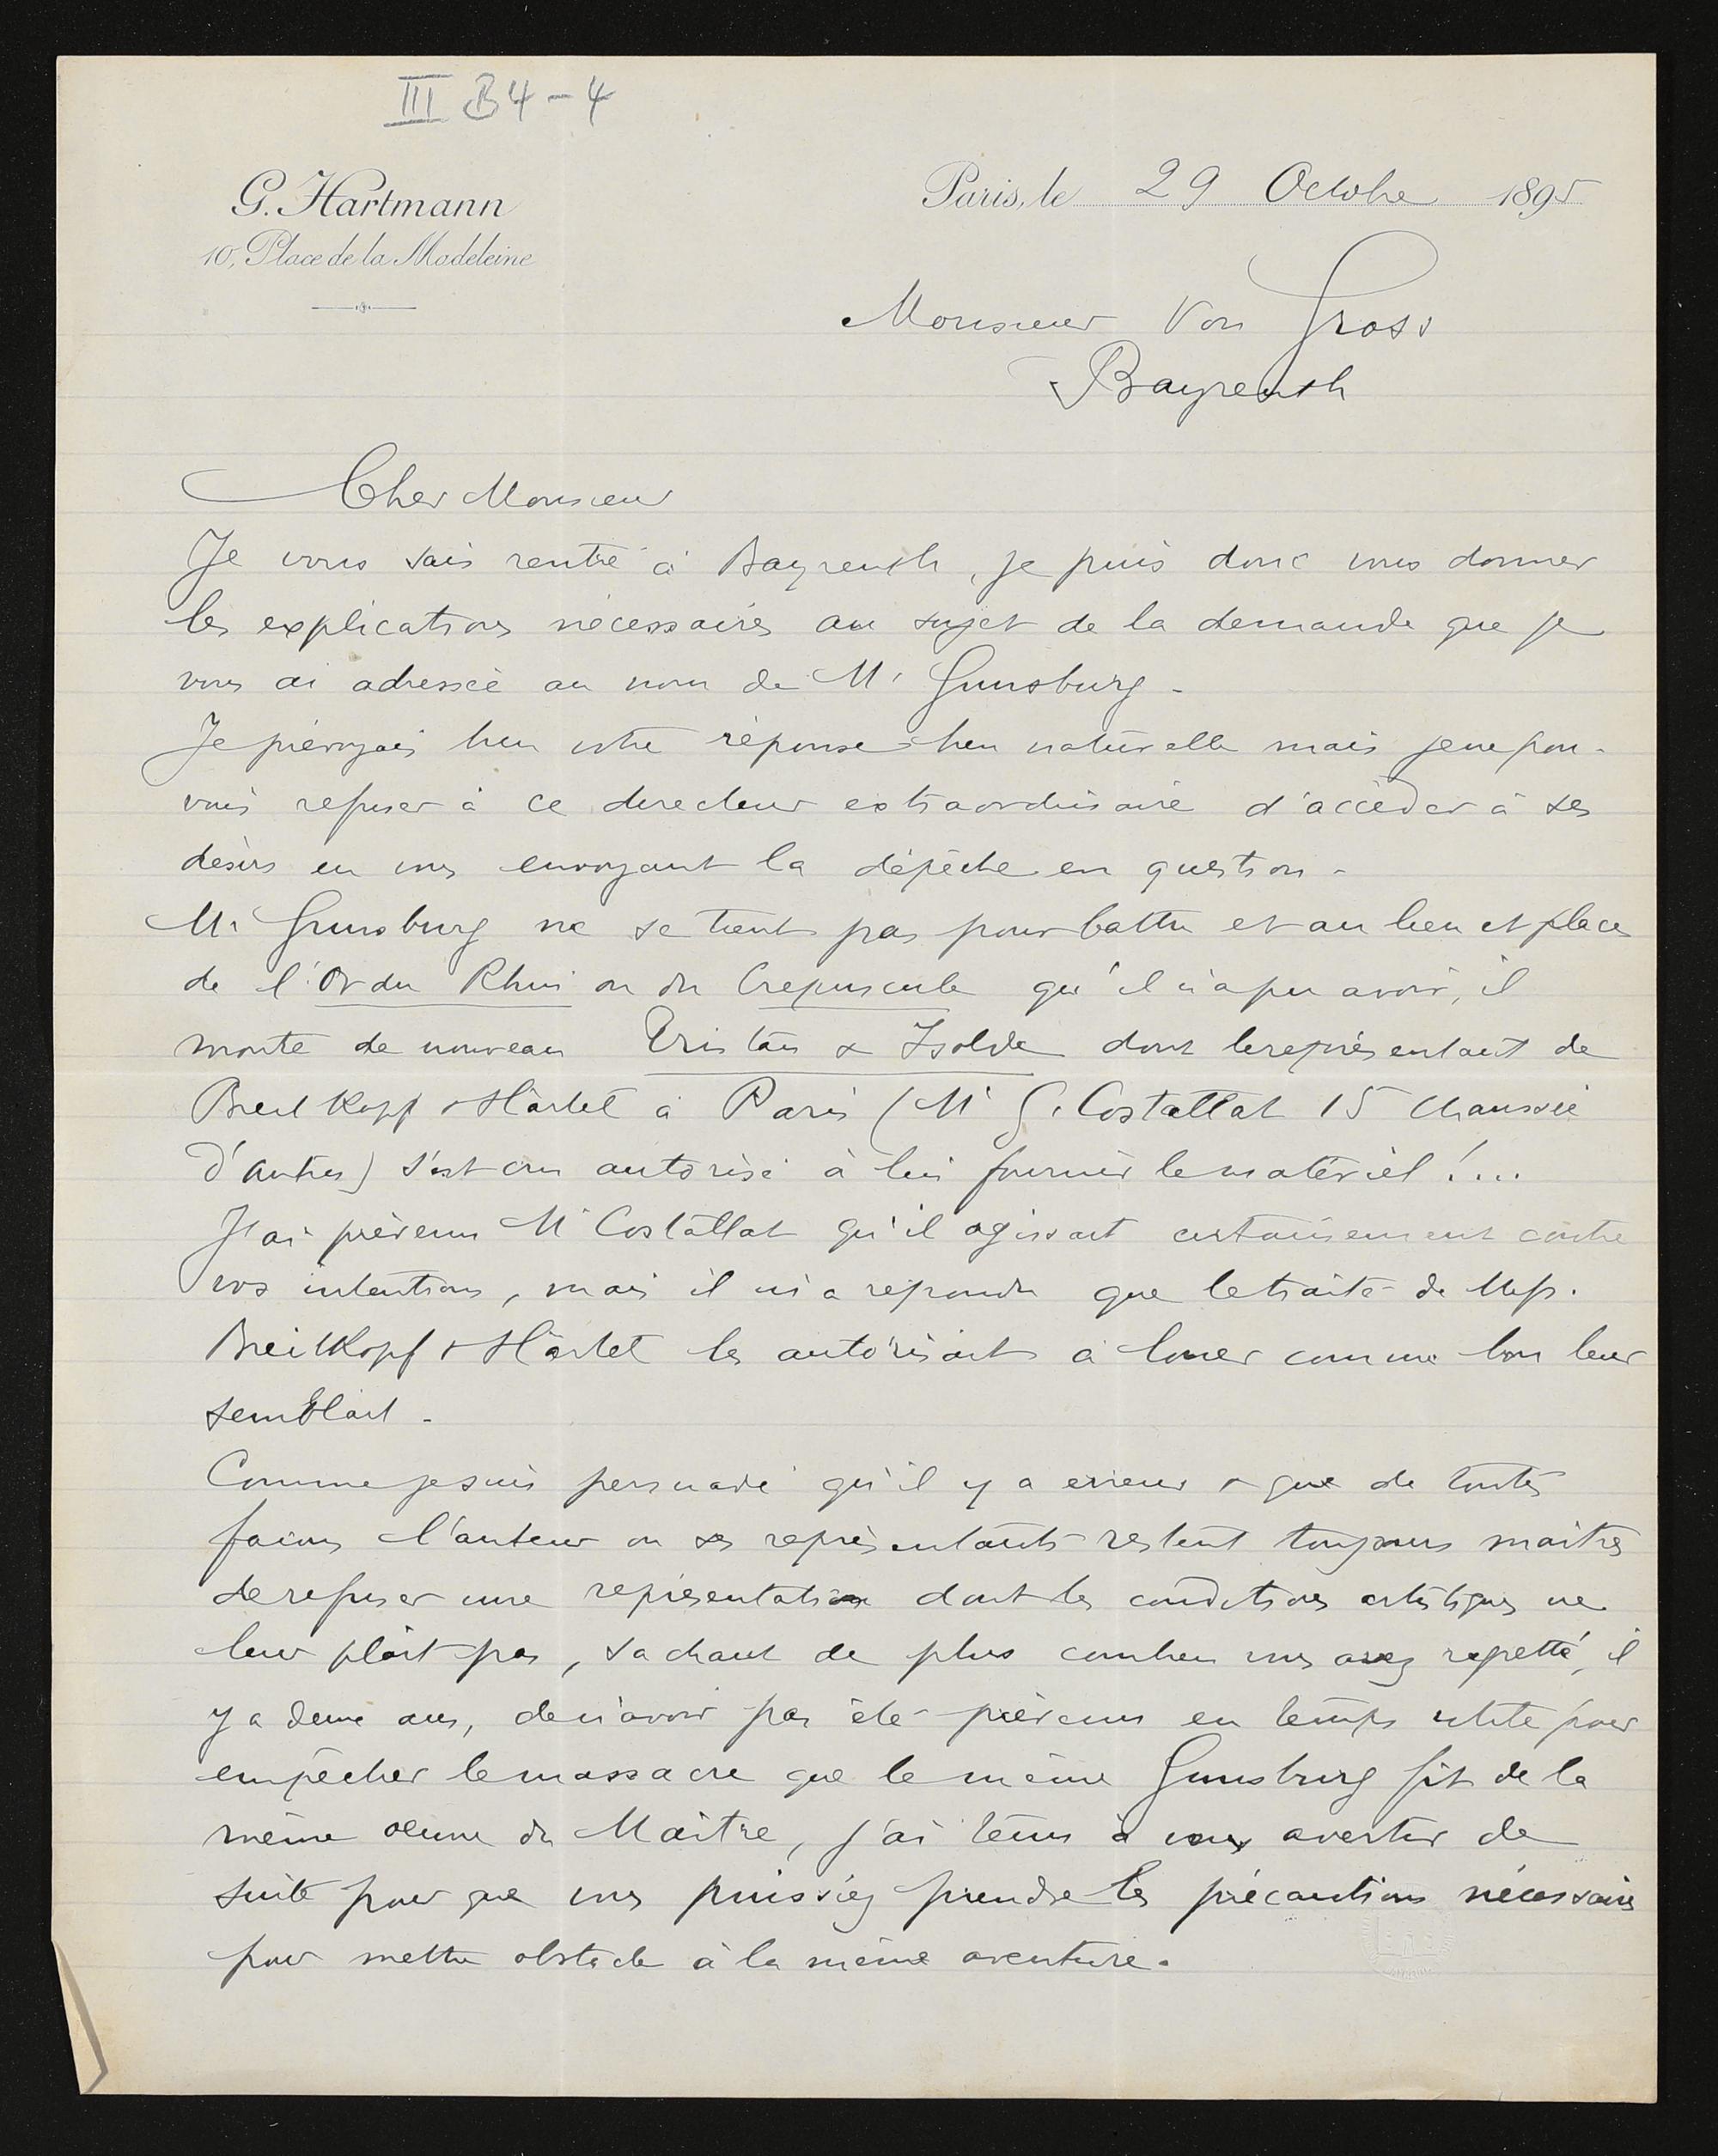 III B4-4
G. Hartmann
10, Place de la Madeleine
Paris, le 29 Octobre 1895
Monsieur Von Gross
Bayreuth
Cher Monsieur
Je vous sais rentré à Bayreuth, je puis donc vous donner
les explications nécessaires au sujet de la demande que je
vous ai adressée au nom de Mr Gunsburg -
Je prévoyais bien votre réponse bien naturelle mais je ne pou-
vais refuser à ce directeur extraordinaire d'accéder à ses
désirs en vous envoyant la dépêche en question -
Mr Gunsburg ne se tient pas pour battu et au lieu et place
de l'Or du Rhin ou du Crepuscule qu'il n'a pu avoir, il
monte de nouveau Tristan & Isolde dont le représentant de
Breitkopf & Härtel à Paris (Mr G. Costallat 15 Chaussée
d'Antin) s'est cru autorisé à lui fournir le matériel !...
J'ai prévenu Mr Costallat qu'il agissait certainement contre
vos intentions, mais il m'a répondu que le traité de Mess.
Breitkopf & Härtel les autorisait à louer comme bon leur
semblait -
Comme je suis persuadé qu'il y a erreur & que de toutes
façons l'auteur ou ses représentants restent toujours maîtres
de refuser une représentation dont les conditions artistiques ne
leur plait pas, sachant de plus combien vous avez regretté, il
y a deux ans, de n'avoir pas été prévenu en temps utile pour
empêcher le massacre que le même Gunsburg fit de la
même oeuvre du Maître, j'ai tenu à vous avertir de
suite pour que vous puissiez prendre les précautions nécessaires
pour mettre obstacle à la même aventure.